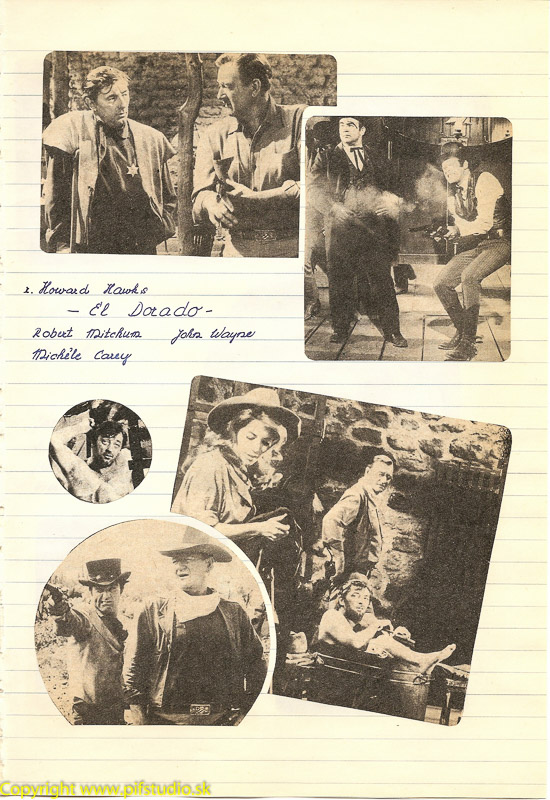 r. Howard Hawks
- El Dorado -
Robert Mitchum John Wayne
Michèle Carey
Copyright www.pifstudio.sk